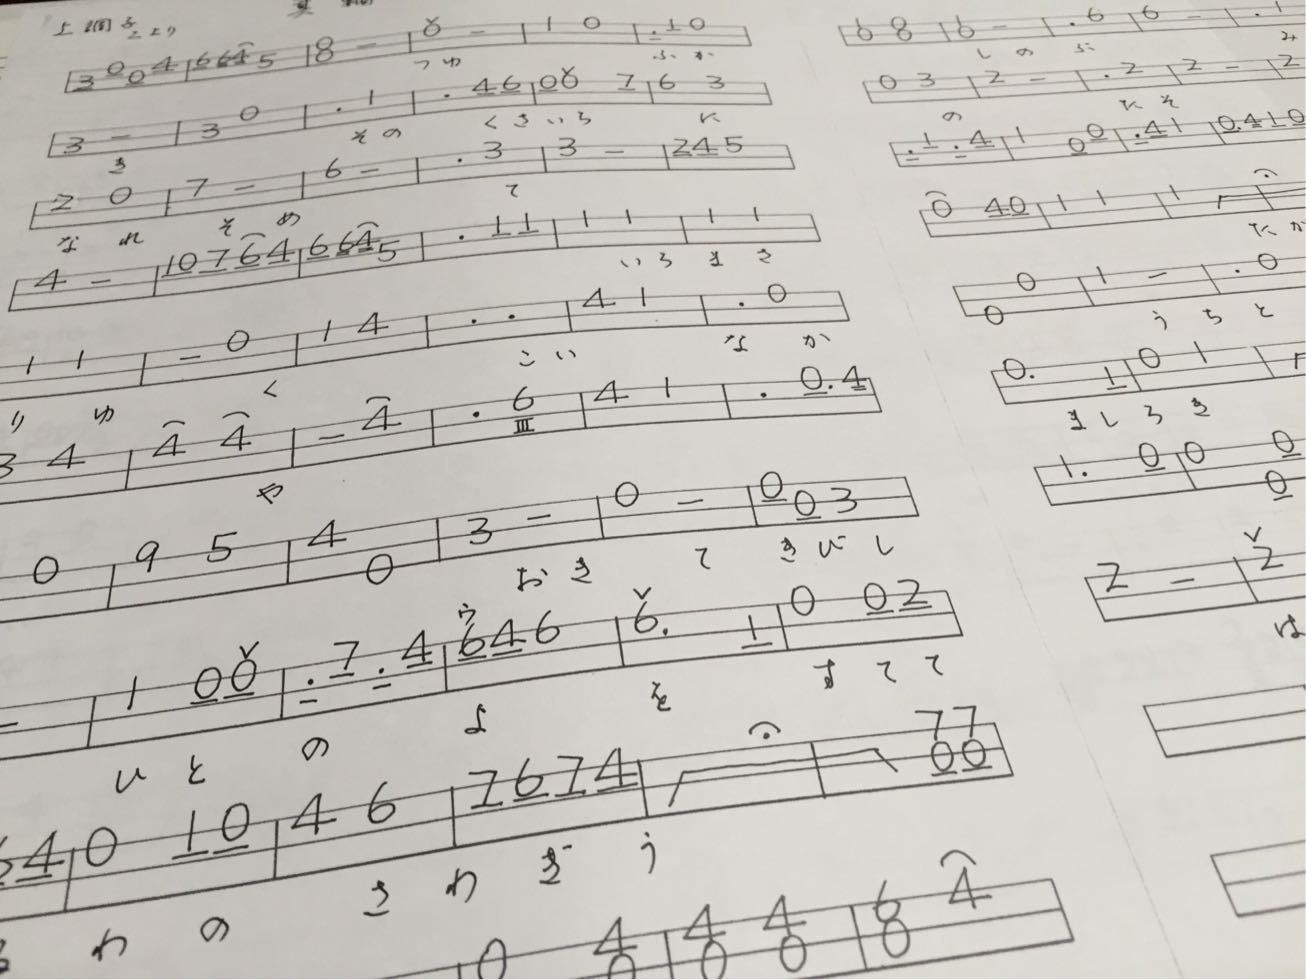 3 0 0 4 | 6 6 4 5 | 8 － | 8 － | 1 0 | . 1 0
つ ゆ ふ か
3 － | 3 0 | . 1 | . 4 6 | 0 8 7 | 6 3
き そ の く さ い ろ に
2 0 | 7 － | 6 － | . 3 | 3 － | 2 4 5
な れ そ め て
4 － | 1 0 7 6 4 | 6 6 4 5 | . 1 1 | 1 1 | 1 1
い ろ ま さ
1 1 | － 0 | 1 4 | . . | 4 1 | . 0
り ゆ く こ い な か
3 4 | 4 4 | － 4 | . 6 | 4 1 | . 0 . 4
III
や
0 | 9 5 | 4 0 | 3 － | 0 － | 0 0 3
お き て き び し
－ | 1 0 0 | . 7 . 4 | 6 4 6 | 6 . 1 | 0 0 2
ウ
い と の よ そ ま て て
6 4 | 0 1 0 | 4 6 | 7 6 7 4 | 7 7
0 0
わ の さ わ ぎ う
0 4 | 4 4 | 6 4
0 0 0 8
6 8 | 6 － | . 6 | 6 － | . 1
し の ぶ み
0 3 | 2 － | . 2 | 2 － | 2
の に そ
. 1 . 4 | 1 0 0 | . 4 1 | 0 4 1 0
0 4 0 | 1 1 | 1
た が
0 0 | 1 － | . 0
う ち と
0 . 1 | 0 1
ま し ろ き
1 . 0 | 0 0
0
2 － | 2
は